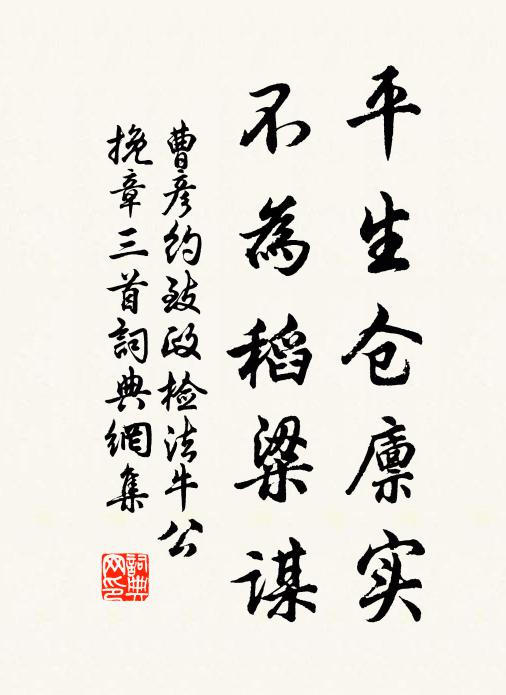 平生仓廪实
不為稻粱谋
曹彦约致政检法牛公
挽章三首詞典網集
詞典网印